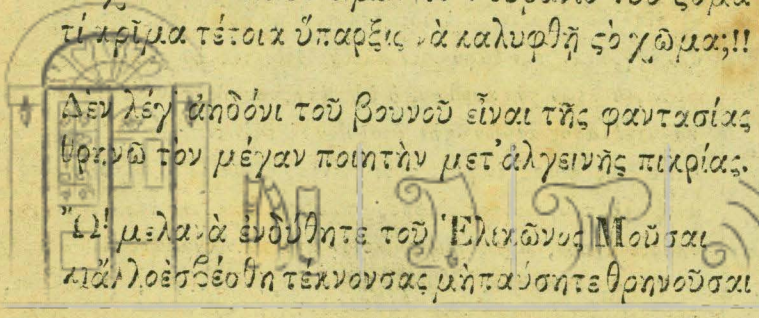 τί κρῖμα τέτοια ὕπαρξις νὰ καλυφθῇ ςὸ χῶμα;!!
Δὲν λέγ' ἀηδόνι τοῦ βουνοῦ εἶναι τῆς φαντασίας
θρηνῶ τὸν μέγαν ποιητὴν μετ' ἀλγεινῆς πικρίας.
Ὦ! μελανὰ ἐνδύθητε τοῦ Ἑλικῶνος Μοῦσαι
κι ἄλλο ἐσβέσθη τέκνον σας μὴ παύσητε θρηνοῦσαι